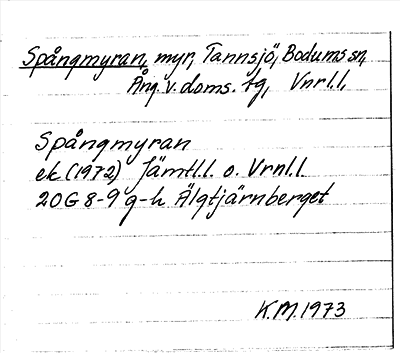 Spångmyran, myr, Tannsjö, Bodums sn,
Ång. v. doms. tg, Vnrl.l.
Spångmyran
ek (1972) Jämtl.l. o. Vrnl.l.
20G 8-9 g-h Älgtjärnberget
K.M. 1973